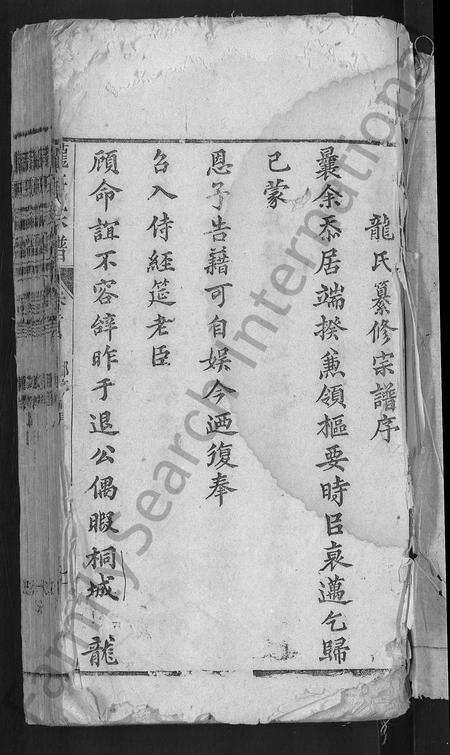 龍氏纂修宗譜序
曩余忝居端揆兼領樞要時㠯衰邁乞歸
已蒙
恩予告藉可自娛今迺復奉
召入侍經筵老臣
顧命誼不容辭昨于退公偶暇桐城龍
龍氏宗譜
FamilySearch International